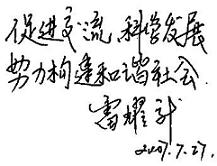 促进交流 科学发展
努力构建和谐社会.
雷耀计
2007.7.27.